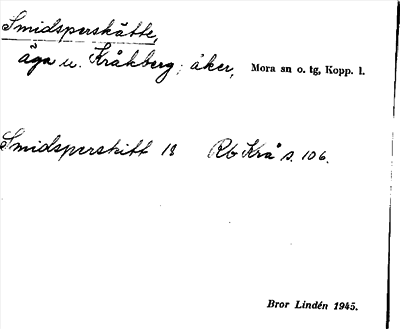 Smidsperskätte,
äga u. Kråkberg; åker, Mora sn o. tg, Kopp. l.
Smidsperskitt 13 Rb Krå s. 106.
Bror Lindén 1945.